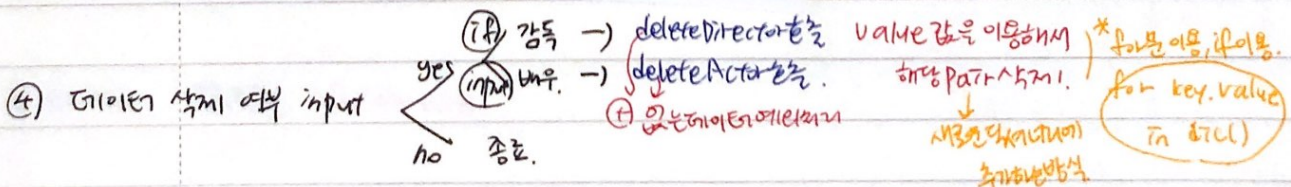 ④ 데이터 삭제 여부 input
yes
(if) 감독 → deleteDirector호출
(input) 배우. → deleteActor호출.
⊕ 없는데이터예외처리
no 종료.
value값을 이용해서
해당 pair 삭제!
↓
새로운 딕셔너리에
추가하는방식
* for문 이용, if이용.
for key.value
in dic()